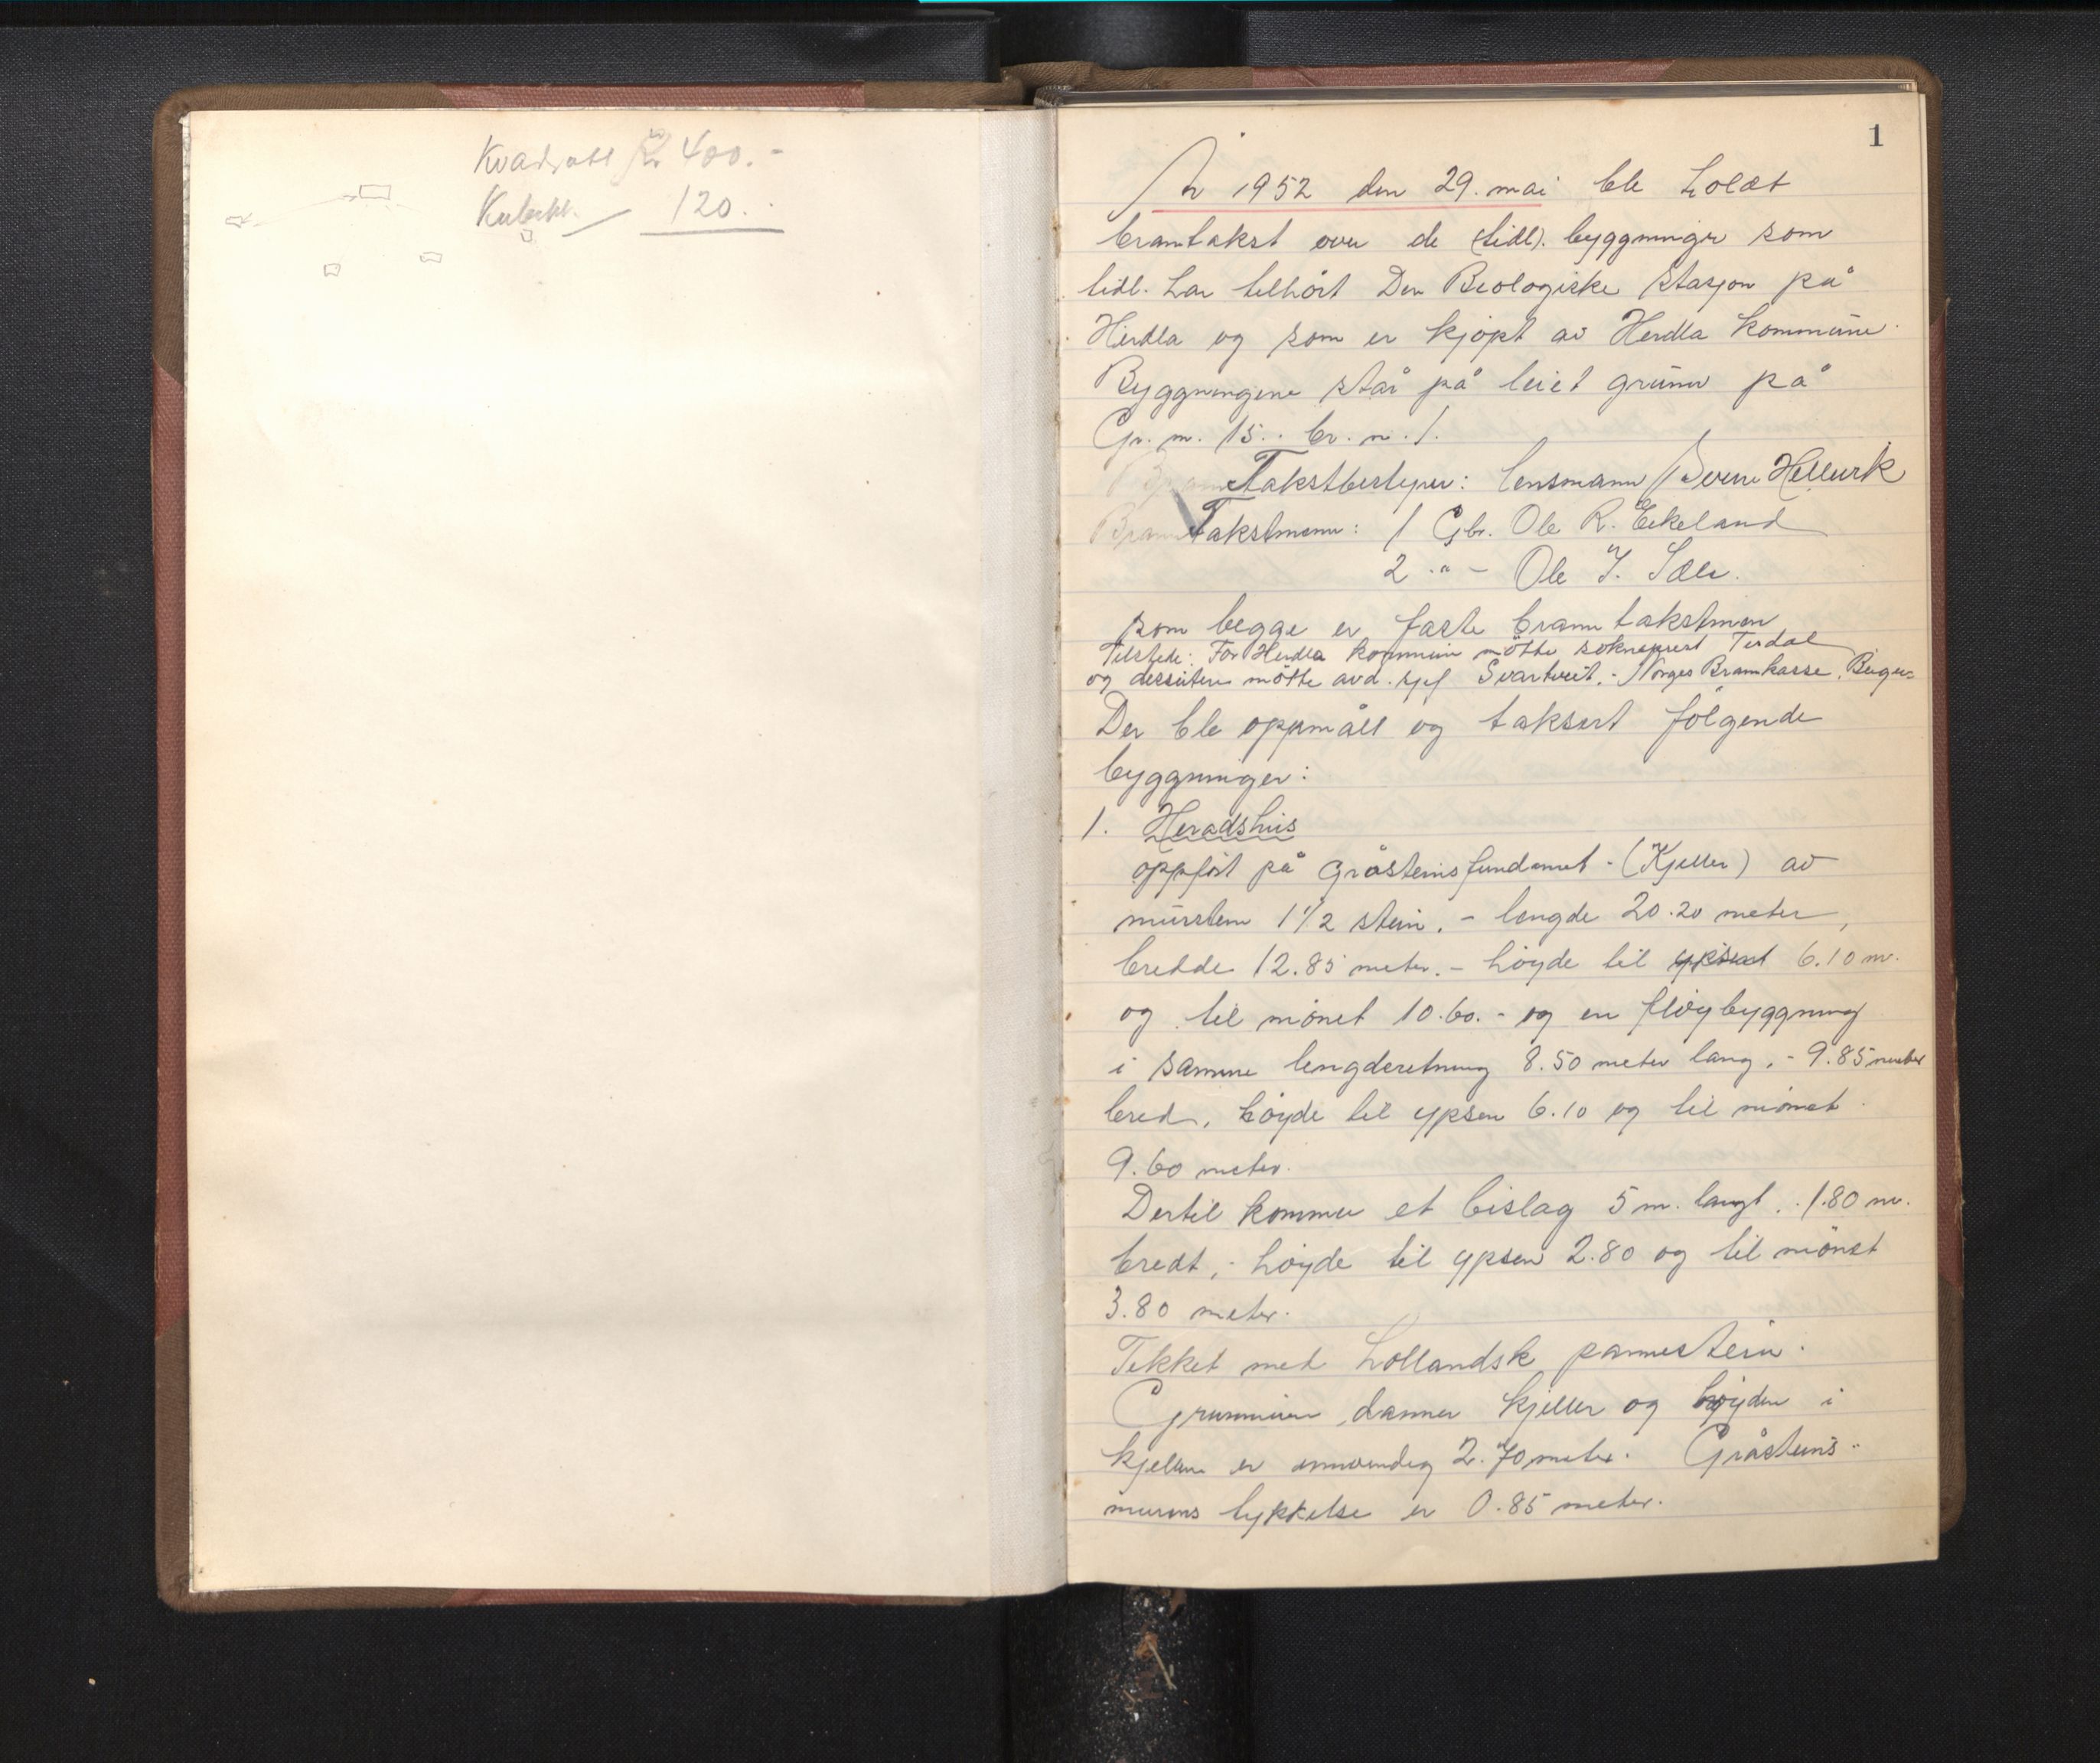 Kvadratt Kr 400.-
Kubikk. — 120..
1
År 1952 den 29. mai ble holdt
branntakst over de (tidl). byggninger som
tidl. har tilhört Den Biologiske stasjon på
Herdla og som er kjöpt av Herdla kommune.
Byggningene står på leiet grunn på
Gr. n. 15.. br. n. 1.
Takstbestyrer: lensmann Sverre Hellevik
Brann Takstmenn: 1 Gbr. Ole R. Eikeland
2 -"- Ole J. Sæle.
som begge er faste branntakstmen
Tilstede: For Herdla kommune mötte sokneprest Terdal
og dessuten mötte avd. sjef Svartveit. - Norges Brannkasse. Bergen-
Der ble oppmålt og taksert fölgende
byggninger:
1. Heradshus
oppfört på gråsteinsfundamet - (Kjeller) av
mursten 1 1/2 stein. - lengde 20.20 meter,
bredde 12.85 meter. - höyde til ypsen 6.10 m.
og til mönet 10.60. - og en flöybyggning
i samme lengderetning 8.50 meter lang. - 9.85 meter
bred, höyde til ypsen 6.10 og til mönet
9.60 meter.
Dertil kommer et bislag 5 m. langt. - 1.80 m.
bredt, - höyde til ypsen 2.80 og til mönet
3.80 meter.
Tekket med hollandsk pannestein.
Grunnmuren danner kjeller og höyden i
kjelleren er innvendig 2.70 meter. Gråsteins-
murens tykkelse er 0.85 meter.